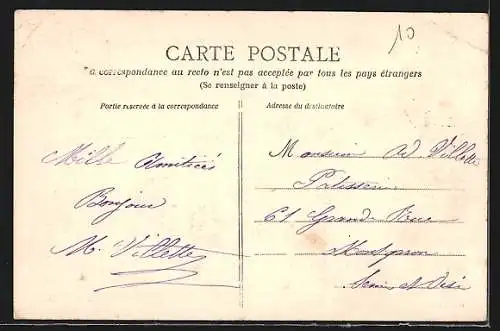 10
CARTE POSTALE
La correspondance au recto n'est pas acceptée par tous les pays étrangers
(Se renseigner à la poste)
Partie réservée à la correspondance
Adresse du destinataire
Mille Amitiés
Bonjour
M. Villette
Monsieur Ad. Villette
61 Grande Rue
Montgeron
Seine et Oise